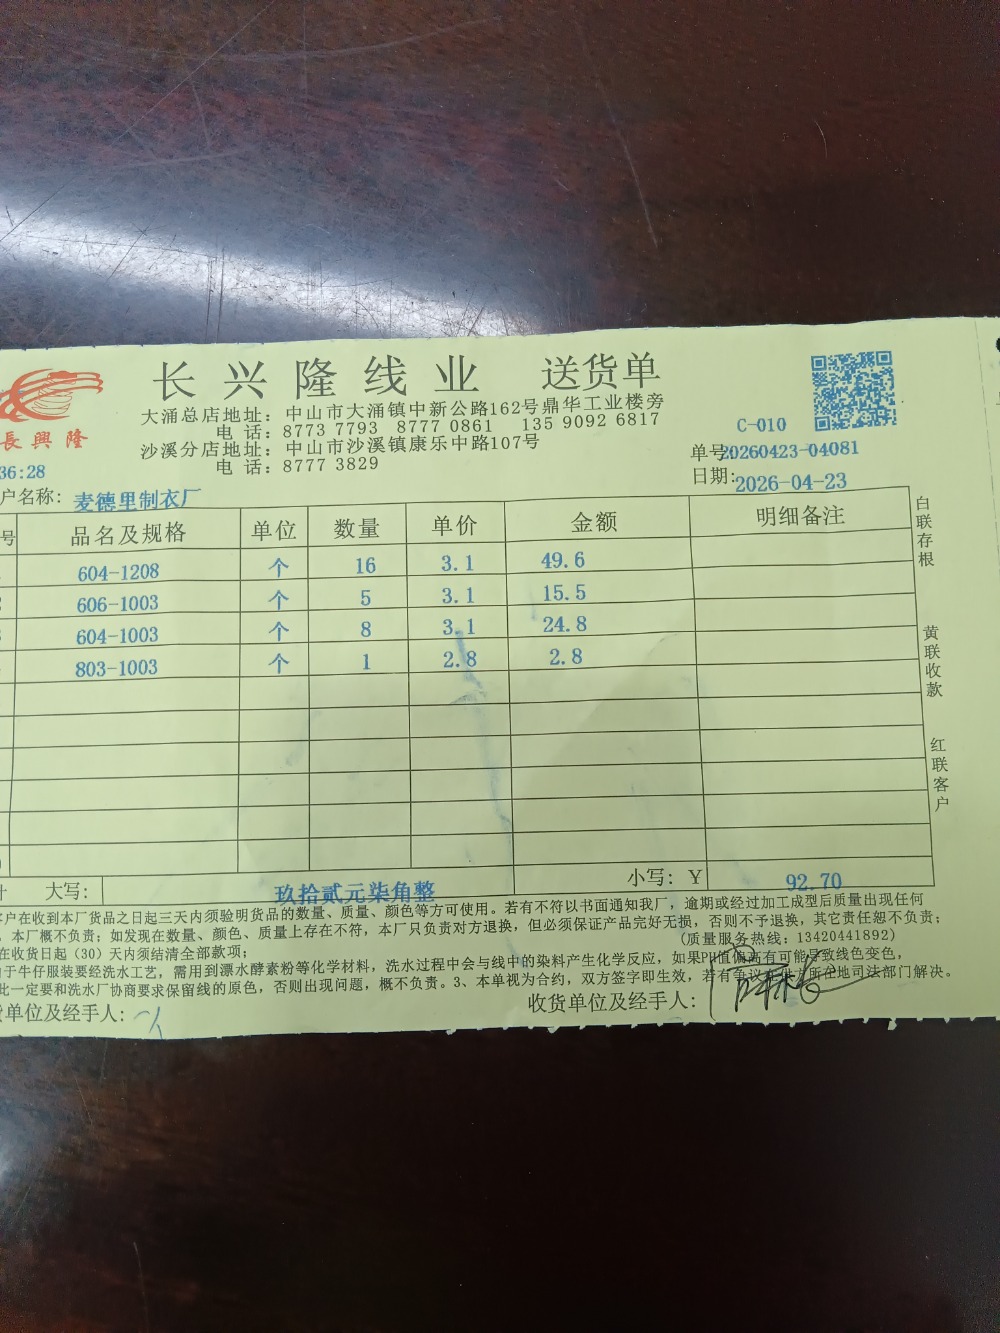 长兴隆线业 送货单
長興隆
大涌总店地址：中山市大涌镇中新公路162号鼎华工业楼旁
电 话：8773 7793 8777 0861 135 9092 6817
沙溪分店地址：中山市沙溪镇康乐中路107号
电 话：8777 3829
C-010
单号:20260423-04081
日期:2026-04-23
36:28
户名称：麦德里制衣厂
号 品名及规格 单位 数量 单价 金额 明细备注
604-1208 个 16 3.1 49.6
606-1003 个 5 3.1 15.5
604-1003 个 8 3.1 24.8
803-1003 个 1 2.8 2.8
大写：玖拾贰元柒角整 小写：Y 92.70
白联存根
黄联收款
红联客户
客户在收到本厂货品之日起三天内须验明货品的数量、质量、颜色等方可使用。若有不符以书面通知我厂，逾期或经过加工成型后质量出现任何
，本厂概不负责；如发现在数量、颜色、质量上存在不符，本厂只负责对方退换，但必须保证产品完好无损，否则不予退换，其它责任恕不负责；
在收货日起（30）天内须结清全部款项；
(质量服务热线：13420441892)
由于牛仔服装要经洗水工艺，需用到漂水酵素粉等化学材料，洗水过程中会与线中的染料产生化学反应，如果PH值偏高有可能导致线色变色，
此一定要和洗水厂协商要求保留线的原色，否则出现问题，概不负责。3、本单视为合约，双方签字即生效，若有争议在供方所在地司法部门解决。
货单位及经手人：
收货单位及经手人：